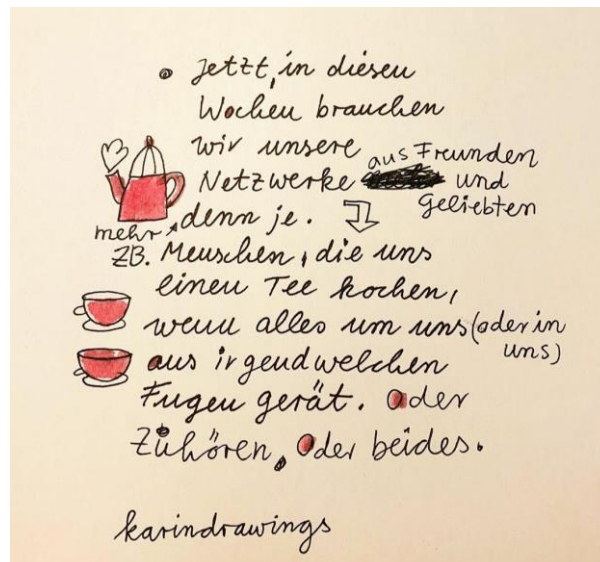 Jetzt, in diesen
Wochen brauchen
wir unsere
Netzwerke aus Freunden und Geliebten
mehr denn je.
ZB. Menschen, die uns
einen Tee kochen,
wenn alles um uns (oder in uns)
aus irgendwelchen
Fugen gerät. Oder
Zuhören, Oder beides.
karindrawings